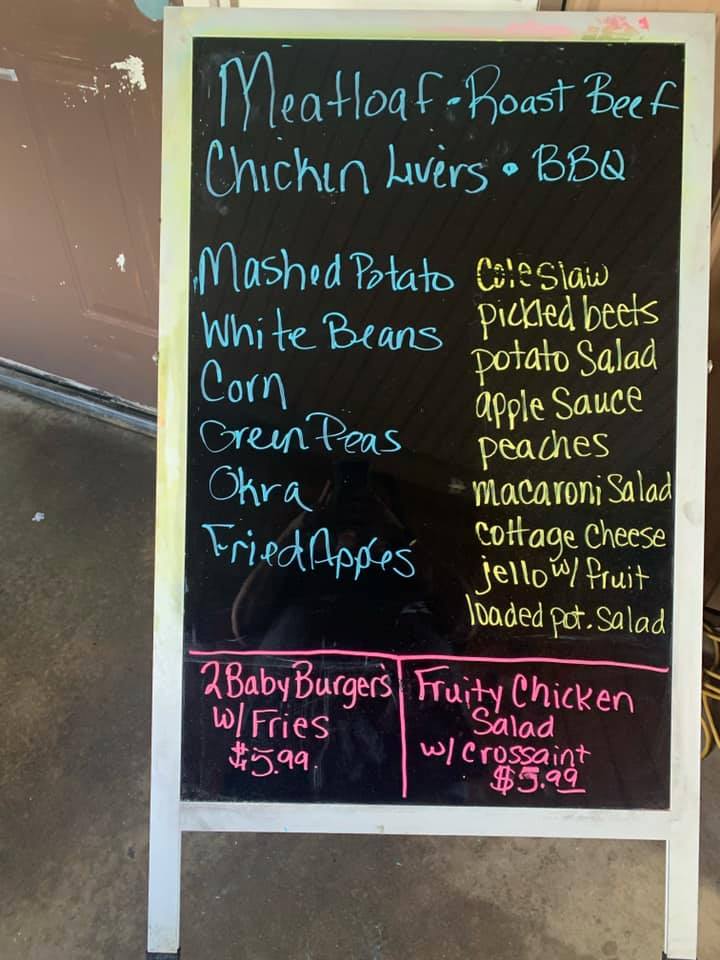 Meatloaf • Roast Beef
Chicken Livers • BBQ
Mashed Potato
White Beans
Corn
Green Peas
Okra
Fried Apples
Cole Slaw
pickled beets
potato Salad
apple Sauce
peaches
macaroni Salad
cottage cheese
jello w/ fruit
loaded pot. Salad
2 Baby Burgers
w/ Fries
$5.99
Fruity Chicken
Salad
w/ Crossaint
$5.99